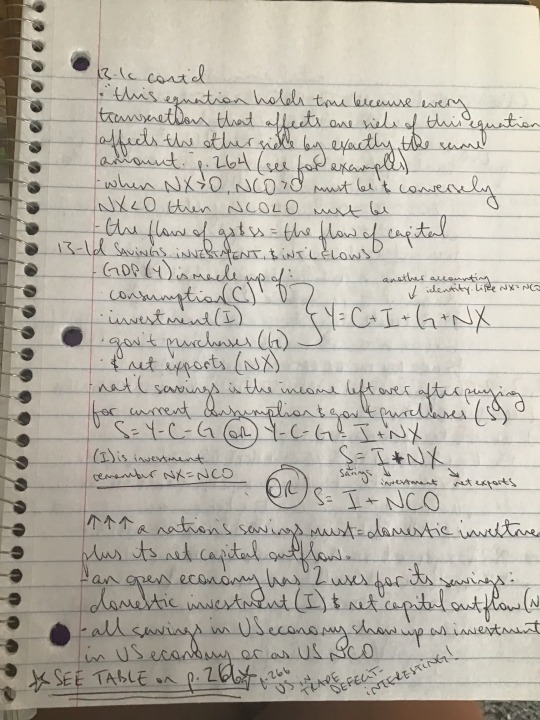 13-1c cont'd
· this equation holds true because every
transaction that affects one side of this equation
affects the other side by exactly the same
amount. p.264 (see for examples)
· when NX>0, NCO>0 must be & conversely
NX<0 then NCO<0 must be
- the flow of gs&ss = the flow of capital
13-1d SAVINGS, INVESTMENT, & INT'L FLOWS
- GDP (Y) is made up of:
another accounting
identity. Like NX=NCO
· consumption (C)
· investment (I)
Y = C + I + G + NX
· gov't purchases (G)
· & net exports (NX)
· nat'l savings is the income left over after paying
for current consumption & gov't purchases (S)
S = Y-C-G OR Y-C-G = I + NX
(I) is investment
S = I + NX
savings investment net exports
remember NX=NCO
OR S = I + NCO
↑↑↑ a nation's savings must = domestic investme
plus its net capital outflow.
- an open economy has 2 uses for its savings:
domestic investment (I) & net capital outflow (N
- all savings in US economy show up as investment
in US economy or as US NCO
☆ SEE TABLE on p.266 ☆ p.266
US IN TRADE DEFECIT-
INTERESTING!